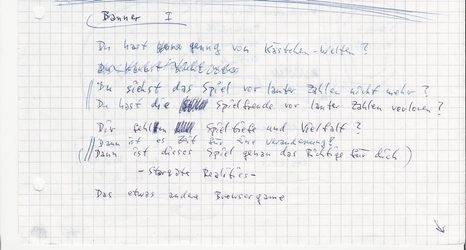 Banner I
Du hast genug von Kästchen-Welten?
Du siehst das Spiel vor lauter Zahlen nicht mehr?
Du hast die Spielfreude vor lauter Zahlen verloren?
Dir fehlen Spieltiefe und Vielfalt?
Dann ist es Zeit für eine Veränderung!
(Dann ist dieses Spiel genau das Richtige für dich)
- Stargate Realities -
Das etwas andere Browsergame